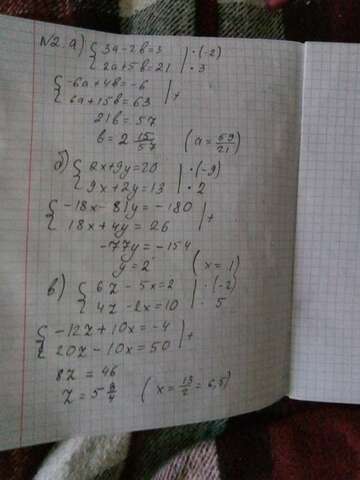 N2. а) { 3a - 2b = 3 | · (-2)
{ 2a + 5b = 21 | · 3
{ -6a + 4b = -6 | +
{ 6a + 15b = 63
21b = 57
b = 2 15/57 ( a = 59/21 )
б) { 2x + 9y = 20 | · (-9)
{ 9x + 2y = 13 | · 2
{ -18x - 81y = -180 | +
{ 18x + 4y = 26
-77y = -154
y = 2 ( x = 1 )
в) { 6z - 5x = 2 | · (-2)
{ 4z - 2x = 10 | · 5
{ -12z + 10x = -4 | +
{ 20z - 10x = 50
8z = 46
z = 5 ( x = 13/2 = 6,5 )